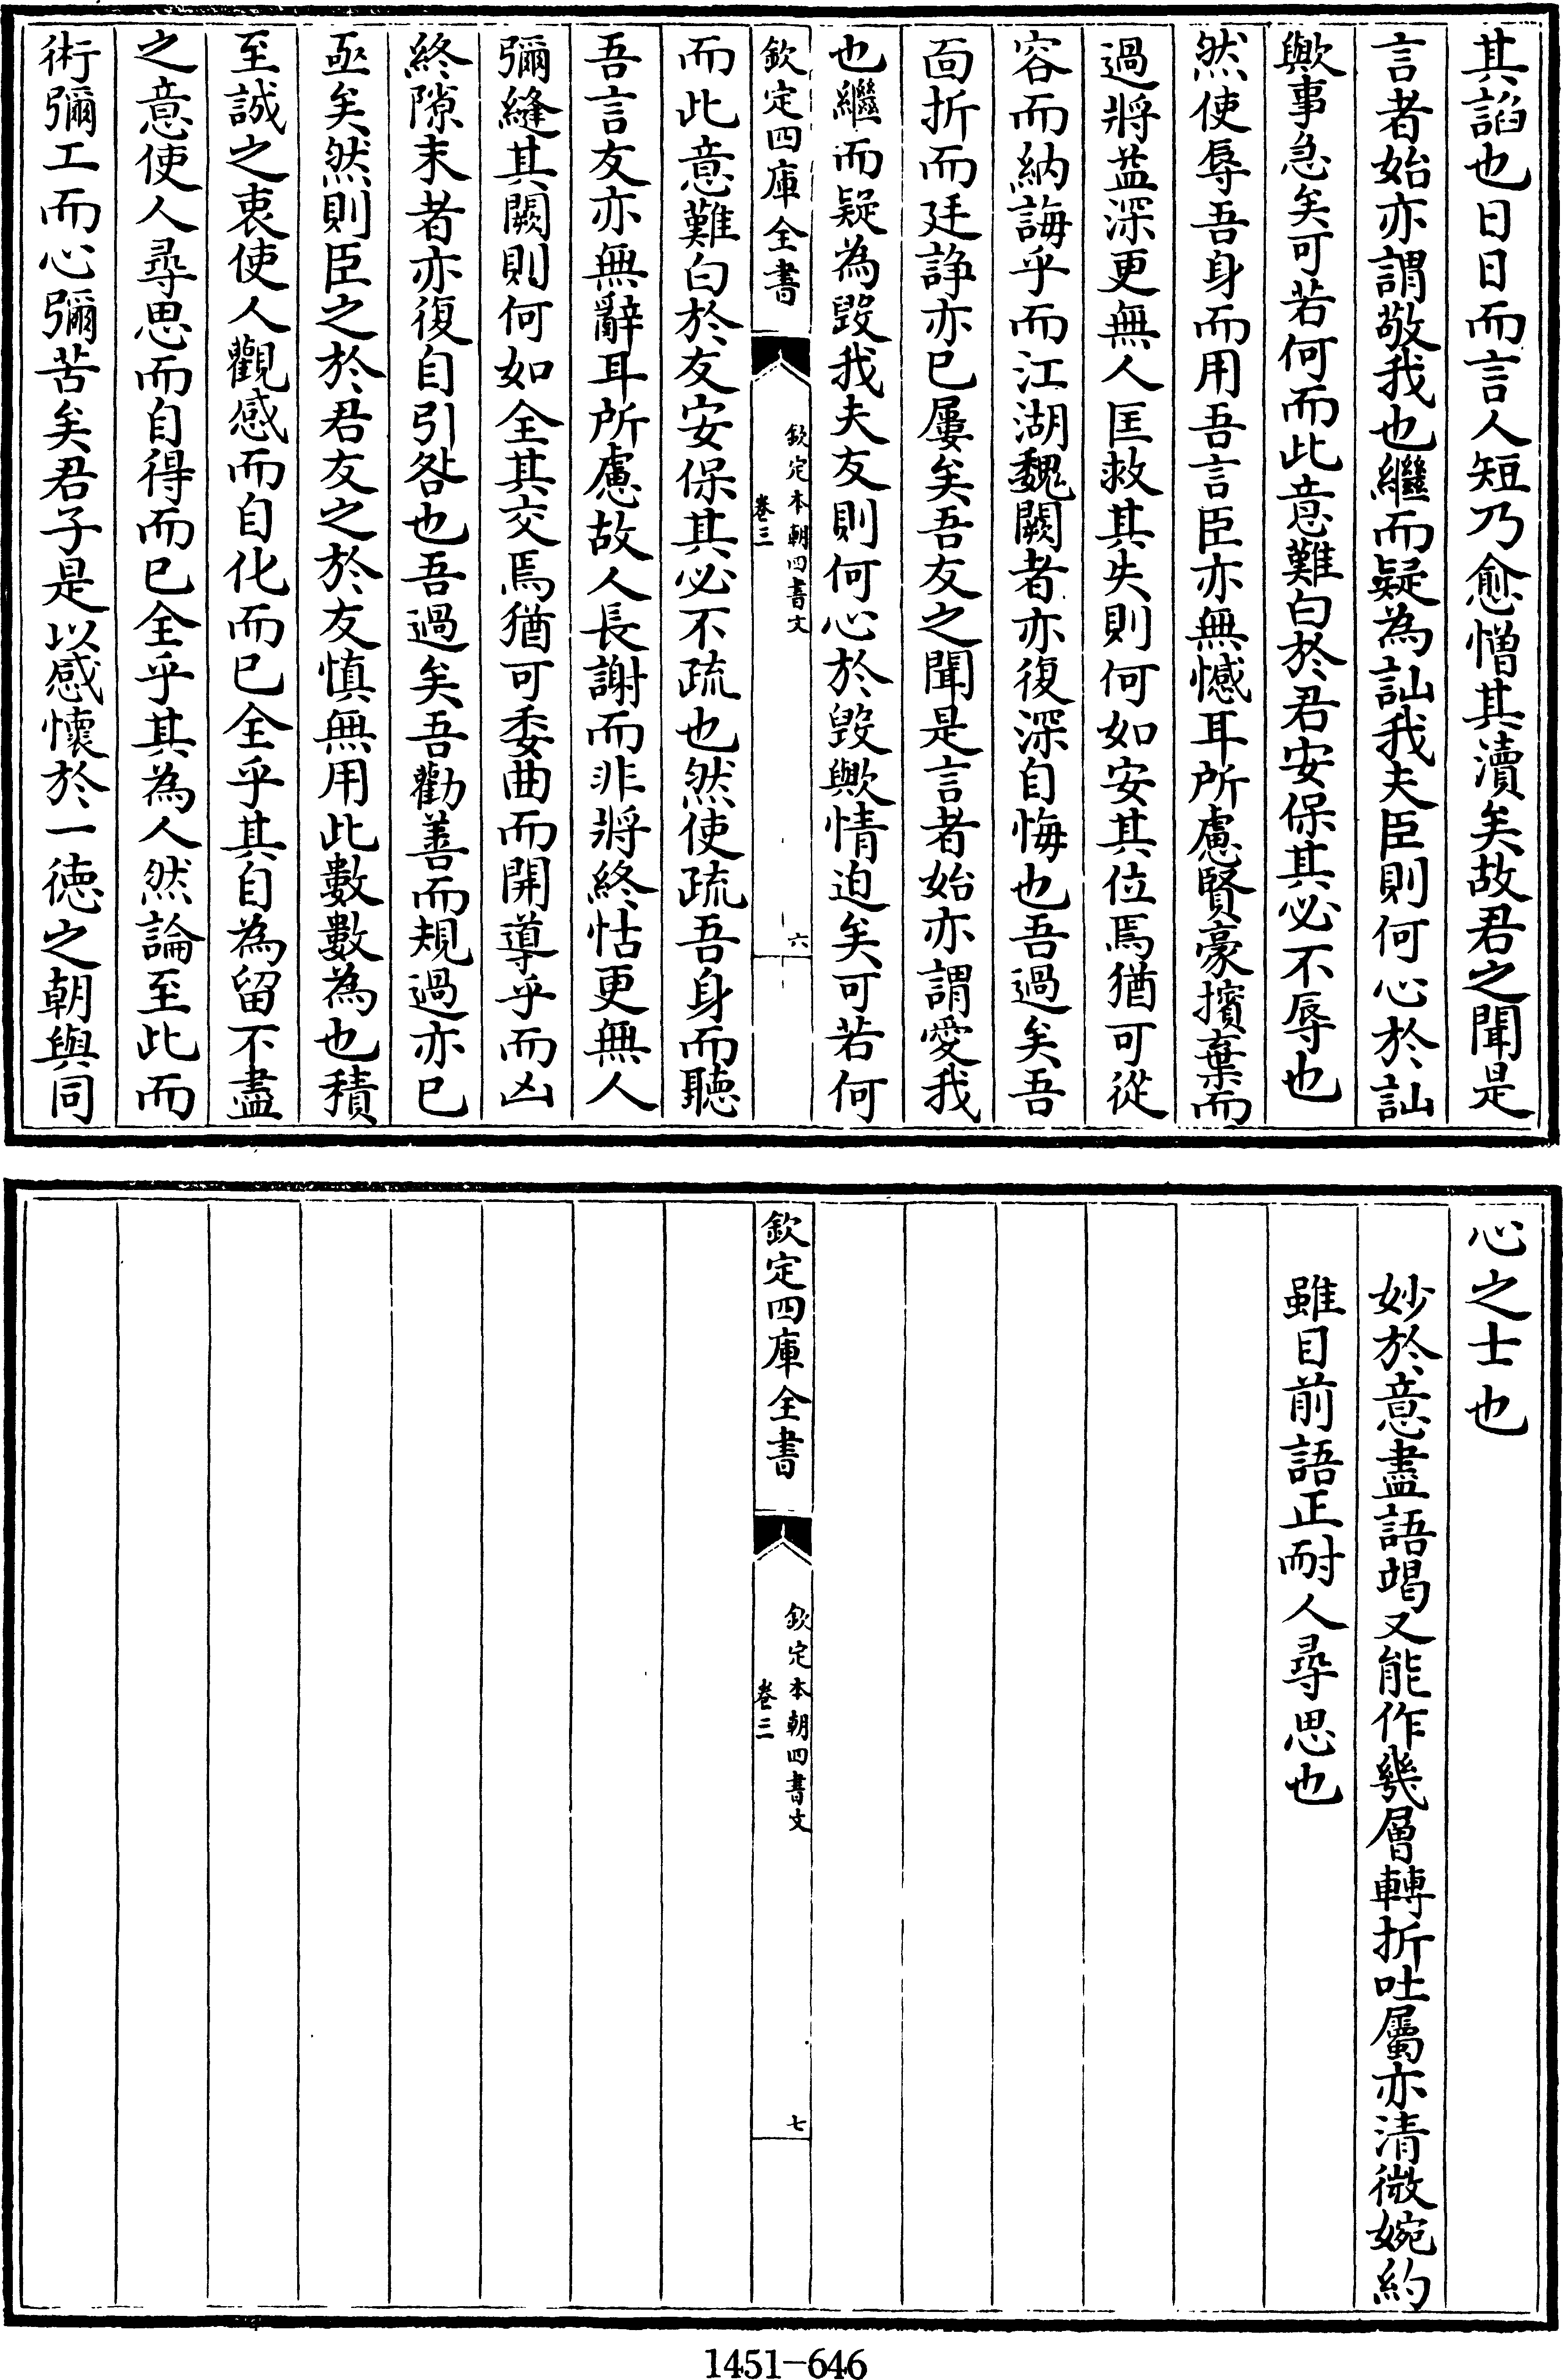 其諂也日日而言人短乃愈憎其瀆矣故君之聞是
言者始亦謂敬我也繼而疑為訕我夫臣則何心於訕
歟事急矣可若何而此意難白於君安保其必不辱也
然使辱吾身而用吾言臣亦無憾耳所慮賢豪擯棄而
過將益深更無人匡救其失則何如安其位焉猶可從
容而納誨乎而江湖魏闕者亦復深自悔也吾過矣吾
面折而廷諍亦已屢矣吾友之聞是言者始亦謂愛我
也繼而疑為毀我夫友則何心於毀歟情迫矣可若何
欽定四庫全書
欽定本朝四書文
卷三
六
而此意難白於友安保其必不疏也然使疏吾身而聽
吾言友亦無辭耳所慮故人長謝而非將終怙更無人
彌縫其闕則何如全其交焉猶可委曲而開導乎而凶
終隙末者亦復自引咎也吾過矣吾勸善而規過亦已
亟矣然則臣之於君友之於友慎無用此數數為也積
至誠之衷使人觀感而自化而已全乎其自為留不盡
之意使人尋思而自得而已全乎其為人然論至此而
術彌工而心彌苦矣君子是以感懷於一德之朝與同
心之士也
妙於意盡語竭又能作幾層轉折吐屬亦清微婉約
雖目前語正耐人尋思也
欽定四庫全書
欽定本朝四書文
卷三
七
1451-646